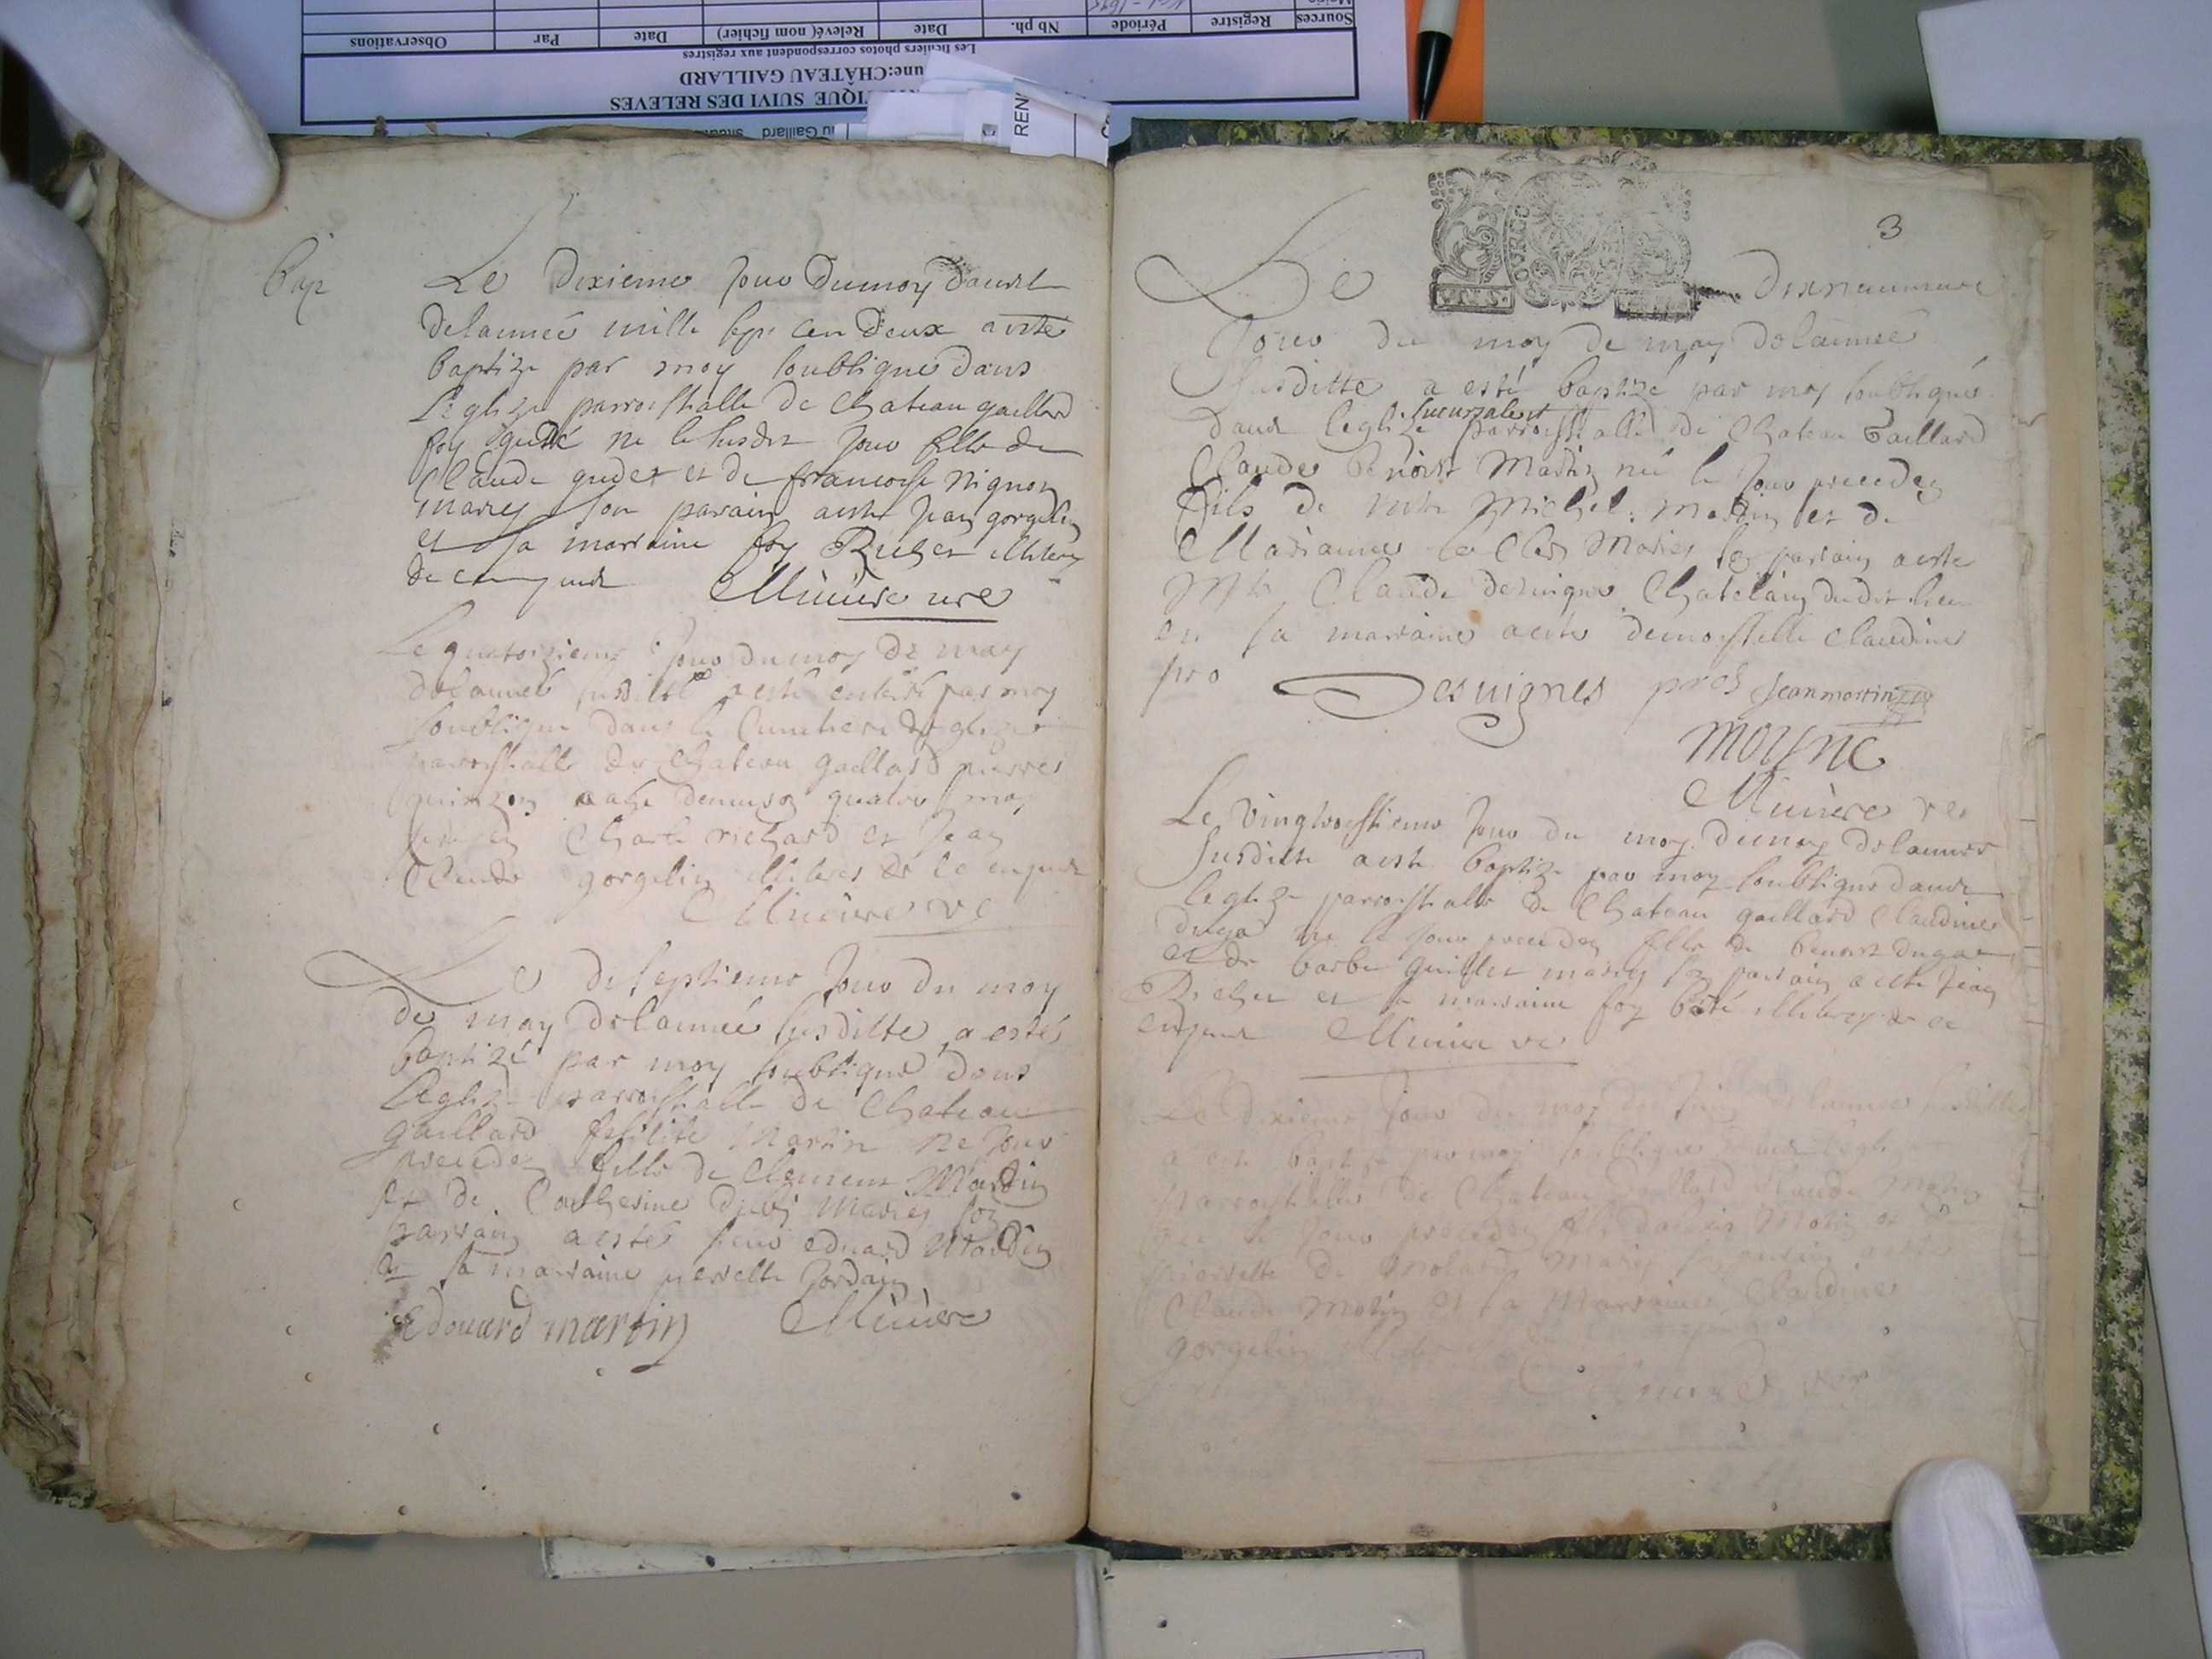 Sources
Registre
Période
Nb ph.
Date
Relevé (nom fichier)
Date
Par
Observations
Les fichiers photos correspondent aux registres
une:CHÂTEAU GAILLARD
TIQUE SUIVI DES RELEVES
REN
Bap
Le dixieme Jour dumoy davril
delannée mille sept cen deux a esté
baptize par moy soubsigné dans
Leglize parroissialle de Chateau gaillard
foy gudet ne le susdit Jour fille de
Claude gudet et de francoise Nignon
mariez son parain a esté Jean gorgelin
et sa marraine foy Ruget illiterez
de ce enquis Muniere vre
Le quatorzieme Jour du moy de may
delannée susditte a esté enterré par moy
soubsigne dans le Cimetiere de leglize
parroissialle de Chateau gaillard pierre
quinzon aage denviron quatre moy
Charle richard et Jean
Claude gorgelin illiteres de ce enquis
Muniere vre
Le dixseptieme Jour du moy
de may delannée susditte a estés
baptizé par moy soubsigné dans
Leglize parroissialle de Chateau
gaillard felicite Martin ne Jour
preceden fille de Clement Martin
et de Catherine mariez son
parrain a esté sieur eduard Martin
et sa marraine pierrette Jordain
edouard martin Muniere
3
Le dixneuvieme
Jour du moy de may delannée
susditte a esté baptizé par moy soubsigné
dans leglize succursale et parroissialle de Chateau Gaillard
Claude Benoist Martin né le Jour preceden
fils de Michel Martin et de
Marianne le Clerc Mariez son parrain a esté
Mre Claude desvignes Chatelain dudit lieu
et sa marraine a esté demoiselle Claudine
pro
Desvignes pros Jean martin
moyne
Muniere vre
Le Vingtroisieme Jour du moy de may delannée
susditte a esté baptize par moy soubsigne dans
leglize parroissialle de Chateau gaillard Claudine
duga ne le Jour preceden fille de benoist duga
et de barbe quillet mariez son parrain a esté Jean
Ruget et sa marraine foy baté illiterez de ce
enquis Muniere vre
Le dixieme Jour du moy de Juin delannée susditte
a esté baptize par moy soubsigne dans leglize
parroissialle de Chateau gaillard Claude Molin
ne le Jour preceden fils Molin et de
pierrette de Molard Mariez son parrain a esté
Claude Molin et sa Marraine Claudine
gorgelin
Muniere vre